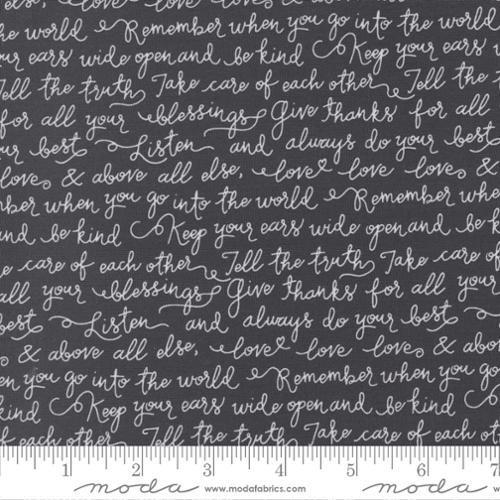 else, love love love
the world Remember when you go into the world
your ears wide open and be kind Keep your ears
Tell the truth Take care of each other Tell the
for all your blessings Give thanks for all
your best Listen and always do your best
love & above all else, love love love &
when you go into the world Remember when
and be kind Keep your ears wide open and be
care of each other Tell the truth Take care of
all your blessings Give thanks for all your
best Listen and always do your best
& above all else, love love love & a
when you go into the world Remember when you go
kind Keep your ears wide open and be kind
of each other Tell the truth Take care of each
1 2 3 4 5 6 7
moda www.modafabrics.com moda www.modafabrics.com moda